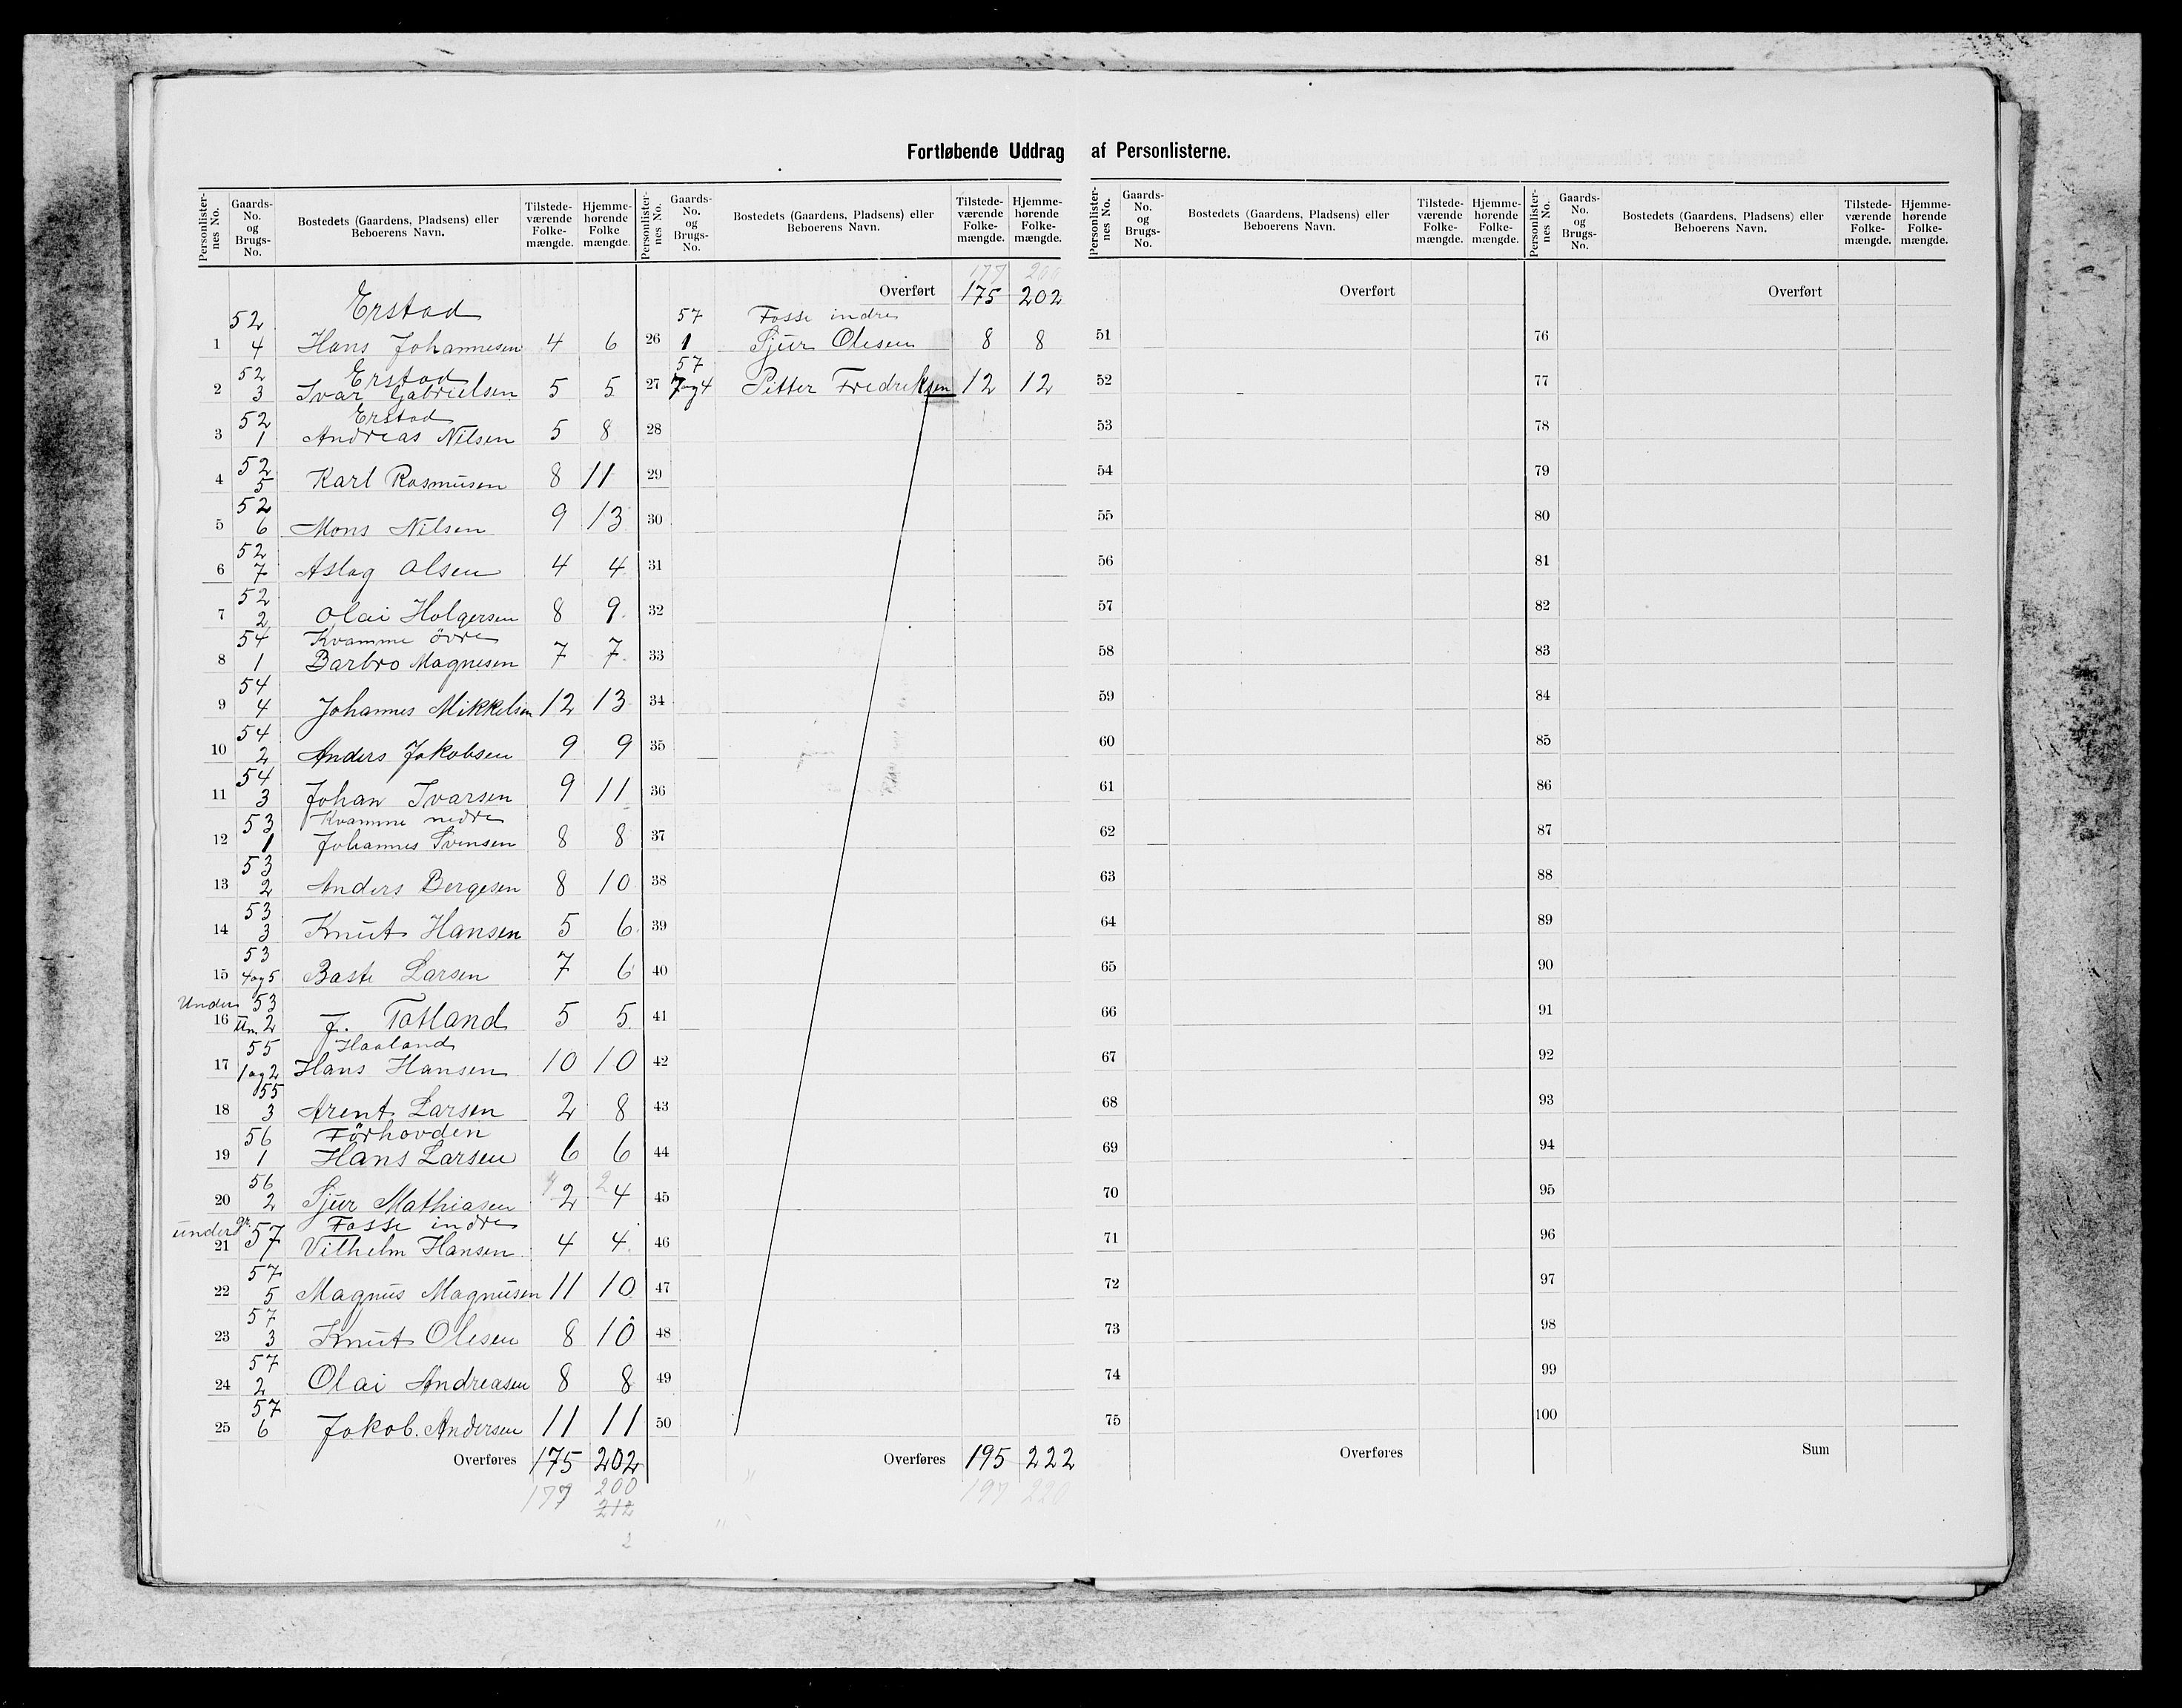 Fortløbende Uddrag af Personlisterne.
Personlister-nes No. Gaards-No. og Brugs-No. Bostedets (Gaardens, Pladsens) eller Beboerens Navn. Tilstede-værende Folke-mængde. Hjemme-hørende Folke mængde.
Erstad
1 52 4 Hans Johannesen 4 6
Erstad
2 52 3 Ivar Gabrielsen 5 5
Erstad
3 52 1 Andreas Nilsen 5 8
4 52 5 Karl Rasmusen 8 11
5 52 6 Mons Nilsen 9 13
6 52 7 Aslag Olsen 4 4
7 52 2 Olai Holgersen 8 9
Kvamme övre
8 54 1 Barbro Magnesen 7 7
9 54 4 Johannes Mikkelsen 12 13
10 54 2 Anders Jakobsen 9 9
11 54 3 Johan Ivarsen 9 11
Kvamme nedre
12 53 1 Johannes Svensen 8 8
13 53 2 Anders Bergesen 8 10
14 53 3 Knut Hansen 5 6
15 53 4 og 5 Baste Larsen 7 6
Under
16 53 2 J. Totland 5 5
Haaland
17 55 1 og 2 Hans Hansen 10 10
18 55 3 Arent Larsen 2 8
Förhovden
19 56 1 Hans Larsen 6 6
20 56 2 Sjur Mathiasen 2 4
under gr. Fosse indre
21 57 1 Vilhelm Hansen 4 4
22 57 5 Magnus Magnusen 11 10
23 57 3 Knut Olesen 8 10
24 57 2 Olai Andreasen 8 8
25 57 6 Jakob Andersen 11 11
Overføres 175 202
177 200
212
2
Personlister-nes No. Gaards-No. og Brugs-No. Bostedets (Gaardens, Pladsens) eller Beboerens Navn. Tilstede-værende Folke-mængde. Hjemme-hørende Folke-mængde.
177 200
Overført 175 202
Fosse indre
26 57 1 Sjur Olesen 8 8
27 57 7 og 4 Petter Fredriksen 12 12
28
29
30
31
32
33
34
35
36
37
38
39
40
41
42
43
44
45
46
47
48
49
50
Overføres 195 222
197 220
Personlister-nes No. Gaards-No. og Brugs-No. Bostedets (Gaardens, Pladsens) eller Beboerens Navn. Tilstede-værende Folke-mængde. Hjemme-hørende Folke-mængde.
Overført
51
52
53
54
55
56
57
58
59
60
61
62
63
64
65
66
67
68
69
70
71
72
73
74
75
Overføres
Personlister-nes No. Gaards-No. og Brugs-No. Bostedets (Gaardens, Pladsens) eller Beboerens Navn. Tilstede-værende Folke-mængde. Hjemme-hørende Folke-mængde.
Overført
76
77
78
79
80
81
82
83
84
85
86
87
88
89
90
91
92
93
94
95
96
97
98
99
100
Sum